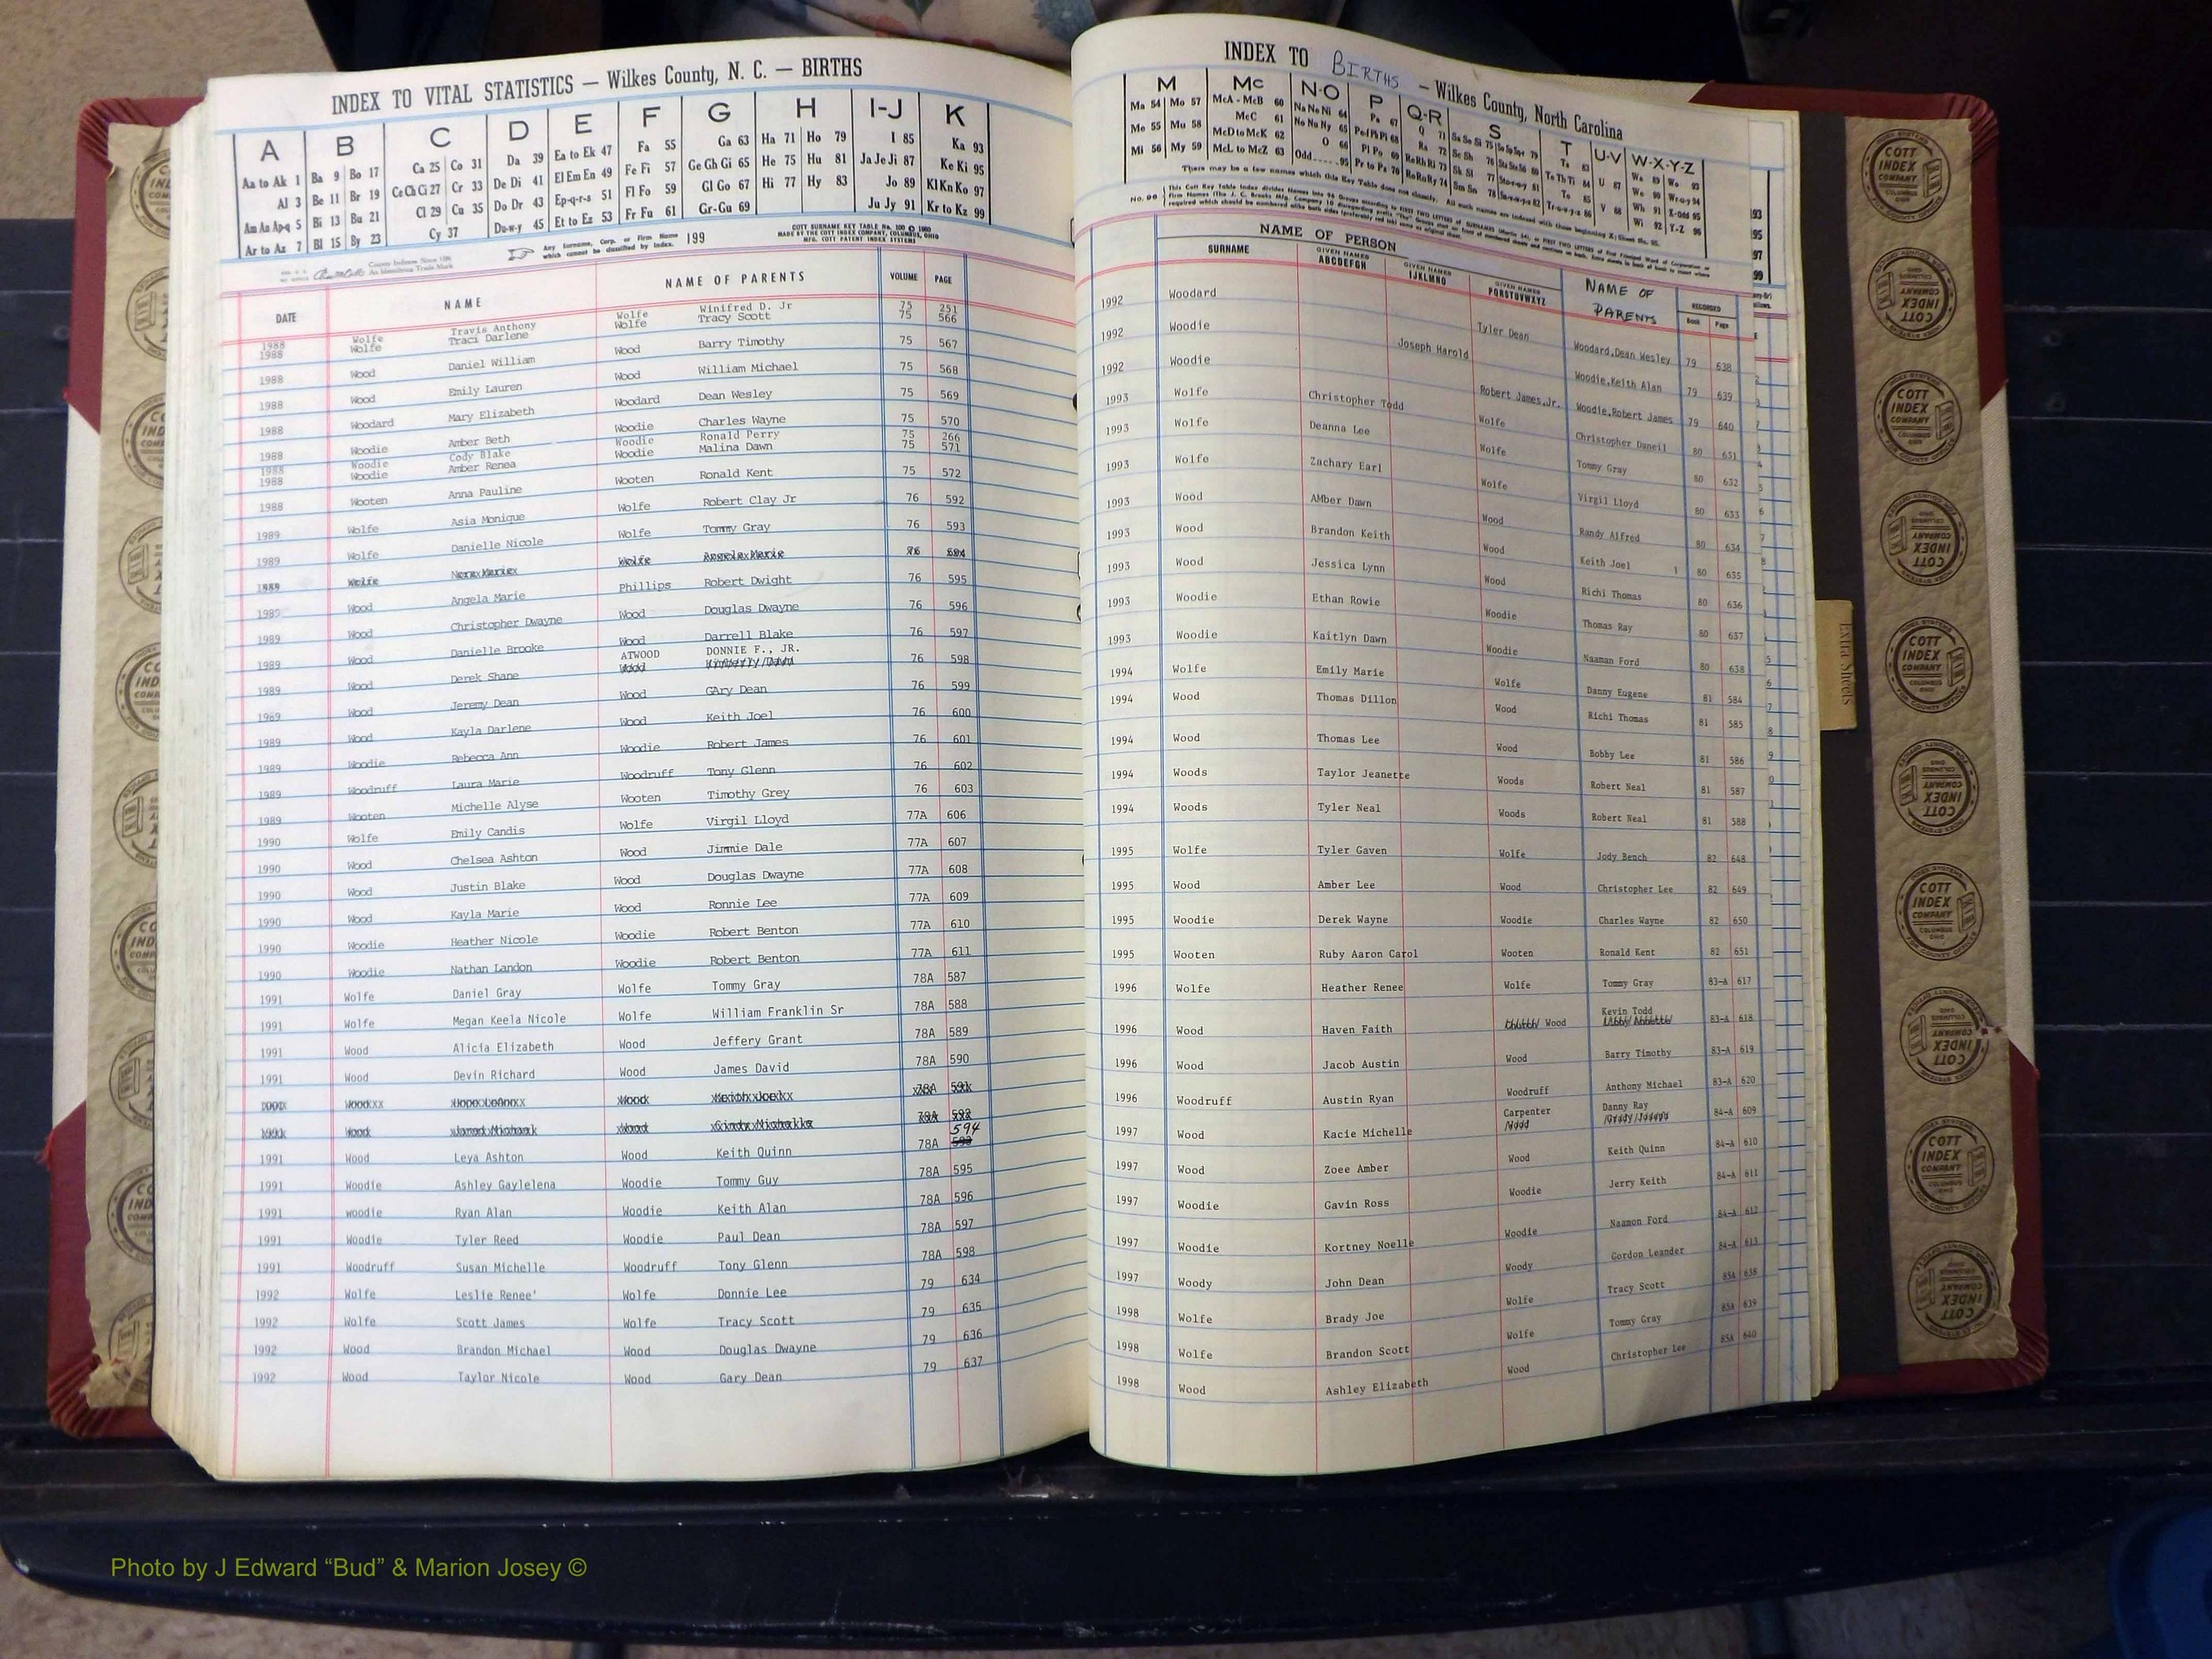 INDEX TO VITAL STATISTICS — Wilkes County, N. C. — BIRTHS
A B C D E F G H I-J K
Aa to Ak 1 Ba 9 Bo 17 Ca 25 Co 31 Da 39 Ea to Ek 47 Fa 55 Ga 63 Ha 71 Ho 79 I 85 Ka 93
Al 3 Be 11 Br 19 Ce Ch Ci 27 Cr 33 De Di 41 El Em En 49 Fe Fi 57 Ge Gh Gi 65 He 75 Hu 81 Ja Je Ji 87 Ke Ki 95
Am An Ap q 5 Bi 13 Bu 21 Cl 29 Cu 35 Do Dr 43 Ep-q-r-s 51 Fl Fo 59 Gl Go 67 Hi 77 Hy 83 Jo 89 Kl Kn Ko 97
Ar to Az 7 Bl 15 By 23 Cy 37 Du-w-y 45 Et to Ez 53 Fr Fu 61 Gr-Gu 69 Ju Jy 91 Kr to Kz 99
Any Surname, Corp. or Firm Name which cannot be classified by index. 199
COTT SURNAME KEY TABLE No. 100
MADE BY THE COTT INDEX COMPANY, COLUMBUS, OHIO
MFG. COTT PATENT INDEX SYSTEMS
DATE NAME NAME OF PARENTS VOLUME PAGE
1988 Wolfe Travis Anthony Wolfe Winifred D. Jr 75 251
1988 Wolfe Traci Darlene Wolfe Tracy Scott 75 566
1988 Wood Daniel William Wood Barry Timothy 75 567
1988 Wood Emily Lauren Wood William Michael 75 568
1988 Woodard Mary Elizabeth Woodard Dean Wesley 75 569
1988 Woodie Amber Beth Woodie Charles Wayne 75 570
1988 Woodie Cody Blake Woodie Ronald Perry 75 266
1988 Woodie Amber Renea Woodie Malina Dawn 75 571
1988 Wooten Anna Pauline Wooten Ronald Kent 75 572
1989 Wolfe Asia Monique Wolfe Robert Clay Jr 76 592
1989 Wolfe Danielle Nicole Wolfe Tommy Gray 76 593
1989 Wolfe Wolfe Angela Marie 76 594
1989 Wood Angela Marie Phillips Robert Dwight 76 595
1989 Wood Christopher Dwayne Wood Douglas Dwayne 76 596
1989 Wood Danielle Brooke Wood Darrell Blake 76 597
1989 Wood Derek Shane ATWOOD DONNIE F., JR. 76 598
Wood Kimberly Dawn
1989 Wood Jeremy Dean Wood GAry Dean 76 599
1989 Wood Kayla Darlene Wood Keith Joel 76 600
1989 Woodie Rebecca Ann Woodie Robert James 76 601
1989 Woodruff Laura Marie Woodruff Tony Glenn 76 602
1989 Wooten Michelle Alyse Wooten Timothy Grey 76 603
1990 Wolfe Emily Candis Wolfe Virgil Lloyd 77A 606
1990 Wood Chelsea Ashton Wood Jimmie Dale 77A 607
1990 Wood Justin Blake Wood Douglas Dwayne 77A 608
1990 Wood Kayla Marie Wood Ronnie Lee 77A 609
1990 Woodie Heather Nicole Woodie Robert Benton 77A 610
1990 Woodie Nathan Landon Woodie Robert Benton 77A 611
1991 Wolfe Daniel Gray Wolfe Tommy Gray 78A 587
1991 Wolfe Megan Keela Nicole Wolfe William Franklin Sr 78A 588
1991 Wood Alicia Elizabeth Wood Jeffery Grant 78A 589
1991 Wood Devin Richard Wood James David 78A 590
Wood Wood 78A 591
1991 Wood Wood 78A 592
1991 Wood Leya Ashton Wood Keith Quinn 78A 594 593
1991 Woodie Ashley Gaylelena Woodie Tommy Guy 78A 595
1991 woodie Ryan Alan Woodie Keith Alan 78A 596
1991 Woodie Tyler Reed Woodie Paul Dean 78A 597
1991 Woodruff Susan Michelle Woodruff Tony Glenn 78A 598
1992 Wolfe Leslie Renee' Wolfe Donnie Lee 79 634
1992 Wolfe Scott James Wolfe Tracy Scott 79 635
1992 Wood Brandon Michael Wood Douglas Dwayne 79 636
1992 Wood Taylor Nicole Wood Gary Dean 79 637
INDEX TO BIRTHS — Wilkes County, North Carolina
M Mc N-O P Q-R S T U-V W-X-Y-Z
Ma 54 Mo 57 McA - McB 60 Na Ne Ni 64 Pa 67 Q 71
Me 55 Mu 58 McC 61 No Nu Ny 65 Ra 72
Mi 56 My 59 McD to McK 62 O 66 Pl Po 69 Re Rh Ri 73
McL to McZ 63 Odd 95 Pr to Pz 70 Ro Ru Ry 74
There may be a few names which this Key Table does not thus classify.
NAME OF PERSON
SURNAME GIVEN NAMES ABCDEFGH GIVEN NAMES IJKLMNO GIVEN NAMES PQRSTUVWXYZ NAME OF PARENTS RECORDED Book Page
1992 Woodard Tyler Dean Woodard,Dean Wesley 79 638
1992 Woodie Joseph Harold Woodie,Keith Alan 79 639
1992 Woodie Robert James,Jr. Woodie,Robert James 79 640
1993 Wolfe Christopher Todd Wolfe Christopher Daneil 80 631
1993 Wolfe Deanna Lee Wolfe Tommy Gray 80 632
1993 Wolfe Zachary Earl Wolfe Virgil Lloyd 80 633
1993 Wood AMber Dawn Wood Randy Alfred 80 634
1993 Wood Brandon Keith Wood Keith Joel 80 635
1993 Wood Jessica Lynn Wood Richi Thomas 80 636
1993 Woodie Ethan Rowie Woodie Thomas Ray 80 637
1993 Woodie Kaitlyn Dawn Woodie Naaman Ford 80 638
1994 Wolfe Emily Marie Wolfe Danny Eugene 81 584
1994 Wood Thomas Dillon Wood Richi Thomas 81 585
1994 Wood Thomas Lee Wood Bobby Lee 81 586
1994 Woods Taylor Jeanette Woods Robert Neal 81 587
1994 Woods Tyler Neal Woods Robert Neal 81 588
1995 Wolfe Tyler Gaven Wolfe Jody Bench 82 648
1995 Wood Amber Lee Wood Christopher Lee 82 649
1995 Woodie Derek Wayne Woodie Charles Wayne 82 650
1995 Wooten Ruby Aaron Carol Wooten Ronald Kent 82 651
1996 Wolfe Heather Renee Wolfe Tommy Gray 83-A 617
1996 Wood Haven Faith Wood Kevin Todd 83-A 618
1996 Wood Jacob Austin Wood Barry Timothy 83-A 619
1996 Woodruff Austin Ryan Woodruff Anthony Michael 83-A 620
1997 Wood Kacie Michelle Carpenter Danny Ray 84-A 609
Wood Grady Joseph
1997 Wood Zoee Amber Wood Keith Quinn 84-A 610
1997 Woodie Gavin Ross Woodie Jerry Keith 84-A 611
1997 Woodie Kortney Noelle Woodie Naamon Ford 84-A 612
1997 Woody John Dean Woody Gordon Leander 84-A 613
1998 Wolfe Brady Joe Wolfe Tracy Scott 85A 638
1998 Wolfe Brandon Scott Wolfe Tommy Gray 85A 639
1998 Wood Ashley Elizabeth Wood Christopher Lee 85A 640
Extra Sheets
COTT INDEX COMPANY COLUMBUS OHIO
Photo by J Edward “Bud” & Marion Josey ©